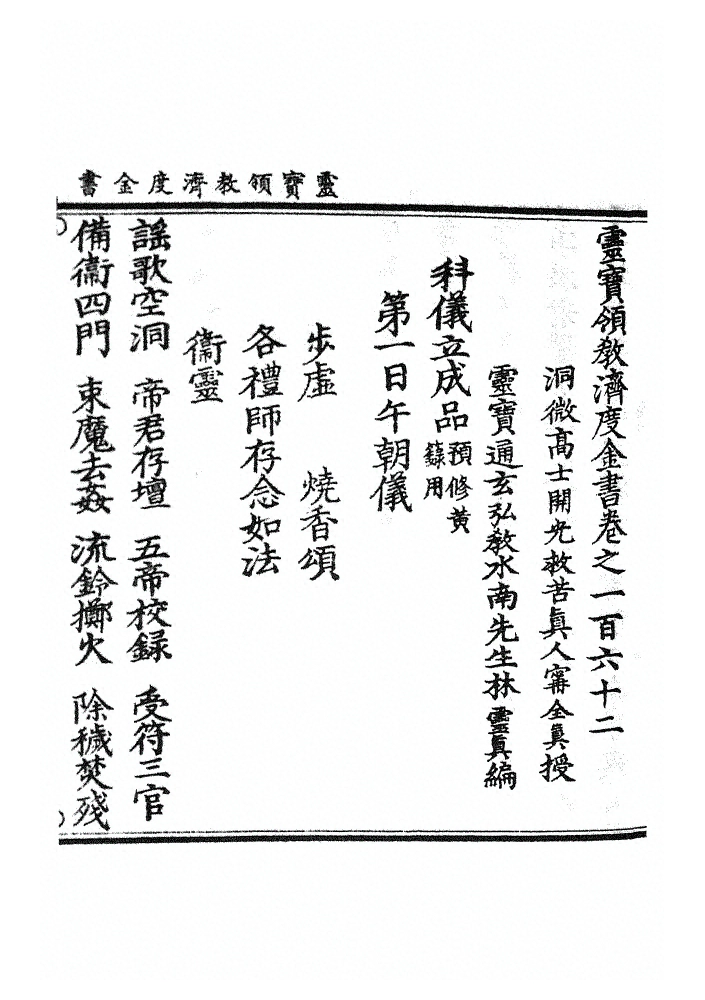 靈寶領教濟度金書
靈寶領教濟度金書卷之一百六十二
洞微高士開光救苦眞人寗全眞授
靈寶通玄弘教水南先生林靈眞編
科儀立成品預修黃籙用
第一日午朝儀
步虛　燒香頌
各禮師存念如法
衞靈
謡歌空洞　帝君存壇　五帝校録　受符三官
備衞四門　束魔去姦　流鈴擲火　除穢焚殘